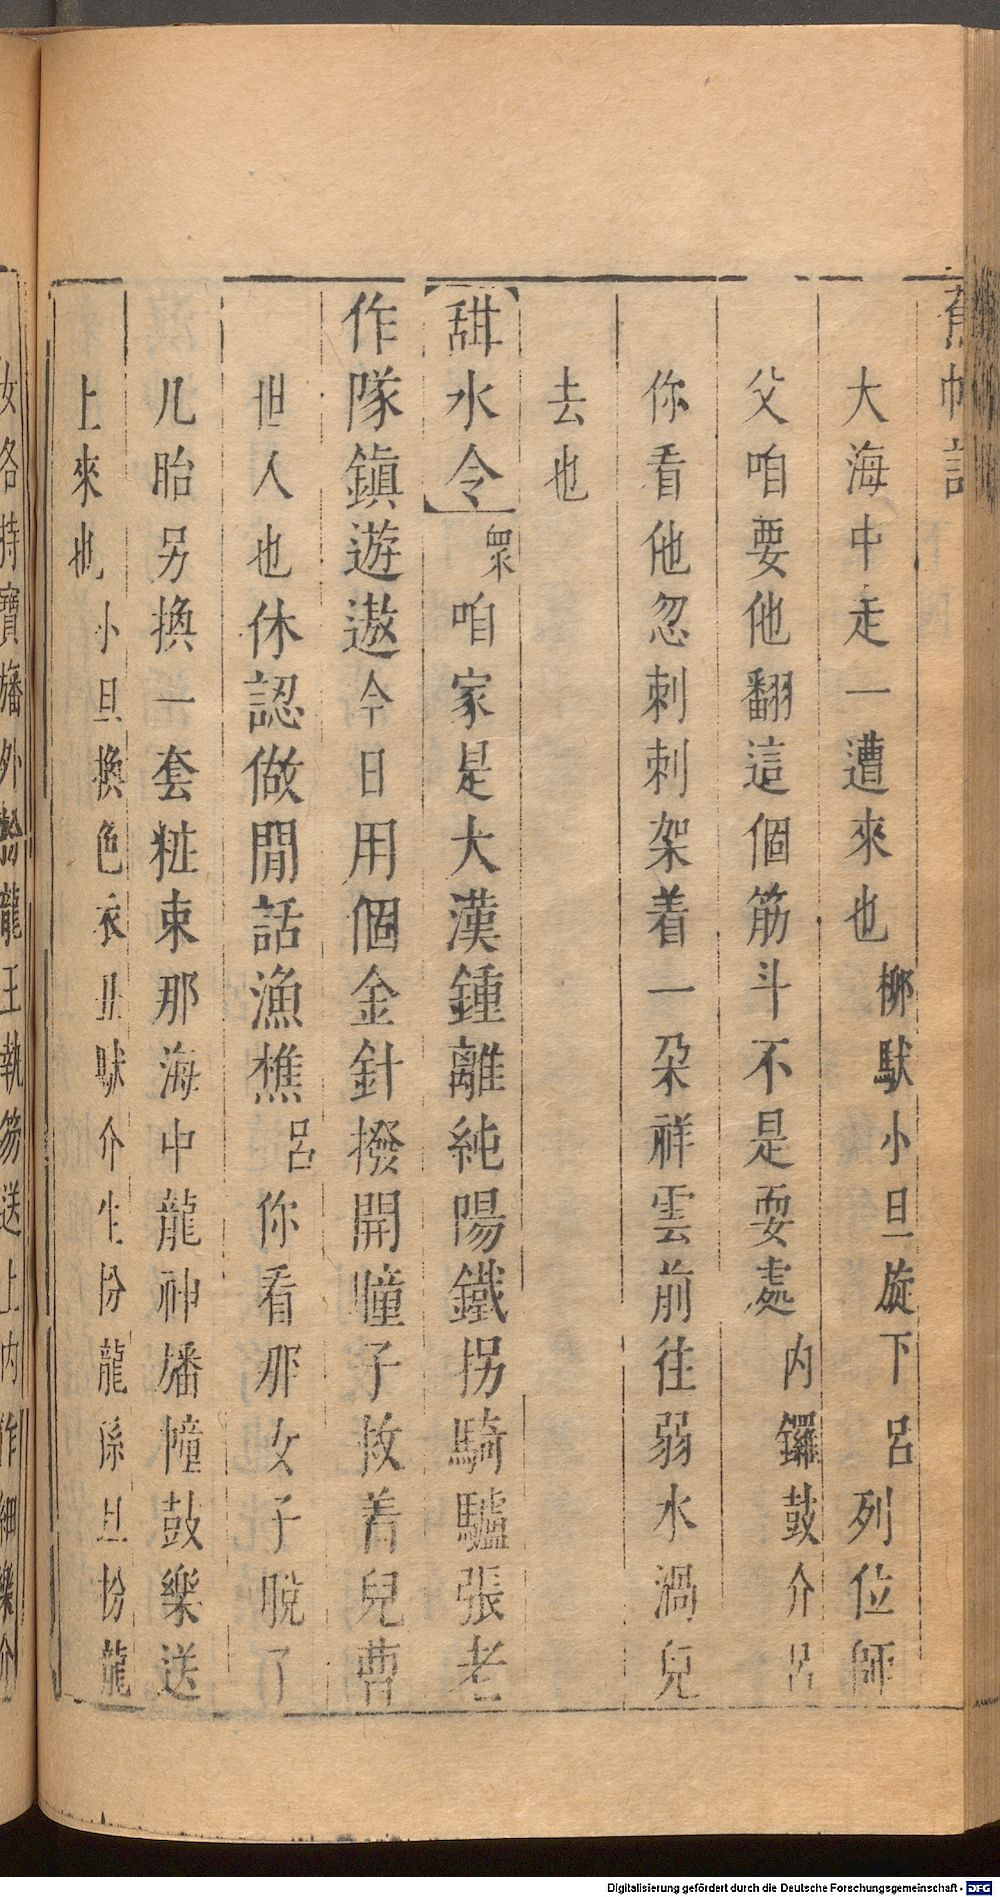 蕉帕記
大海中走一遭來也柳馱小旦旋下呂列位師
父咱要他翻這個筋斗不是耍處内鑼鼓介呂
你看他忽刺刺架着一朶祥雲前往弱水渦兒
去也
甜水令衆咱家是大漢鍾離純陽鐵拐騎驢張老
作隊鎭遊遨今日用個金針撥開瞳子救着兒曹
世人也休認做閒話漁樵呂你看那女子脫了
凡胎另換一套粧束那海中龍神旛幢鼓樂送
上來也小旦換色衣丑馱介生扮龍孫旦扮龍
女各持寶旛外扮龍王執笏送上内作細樂介
Digitalisierung gefördert durch die Deutsche Forschungsgemeinschaft - DFG